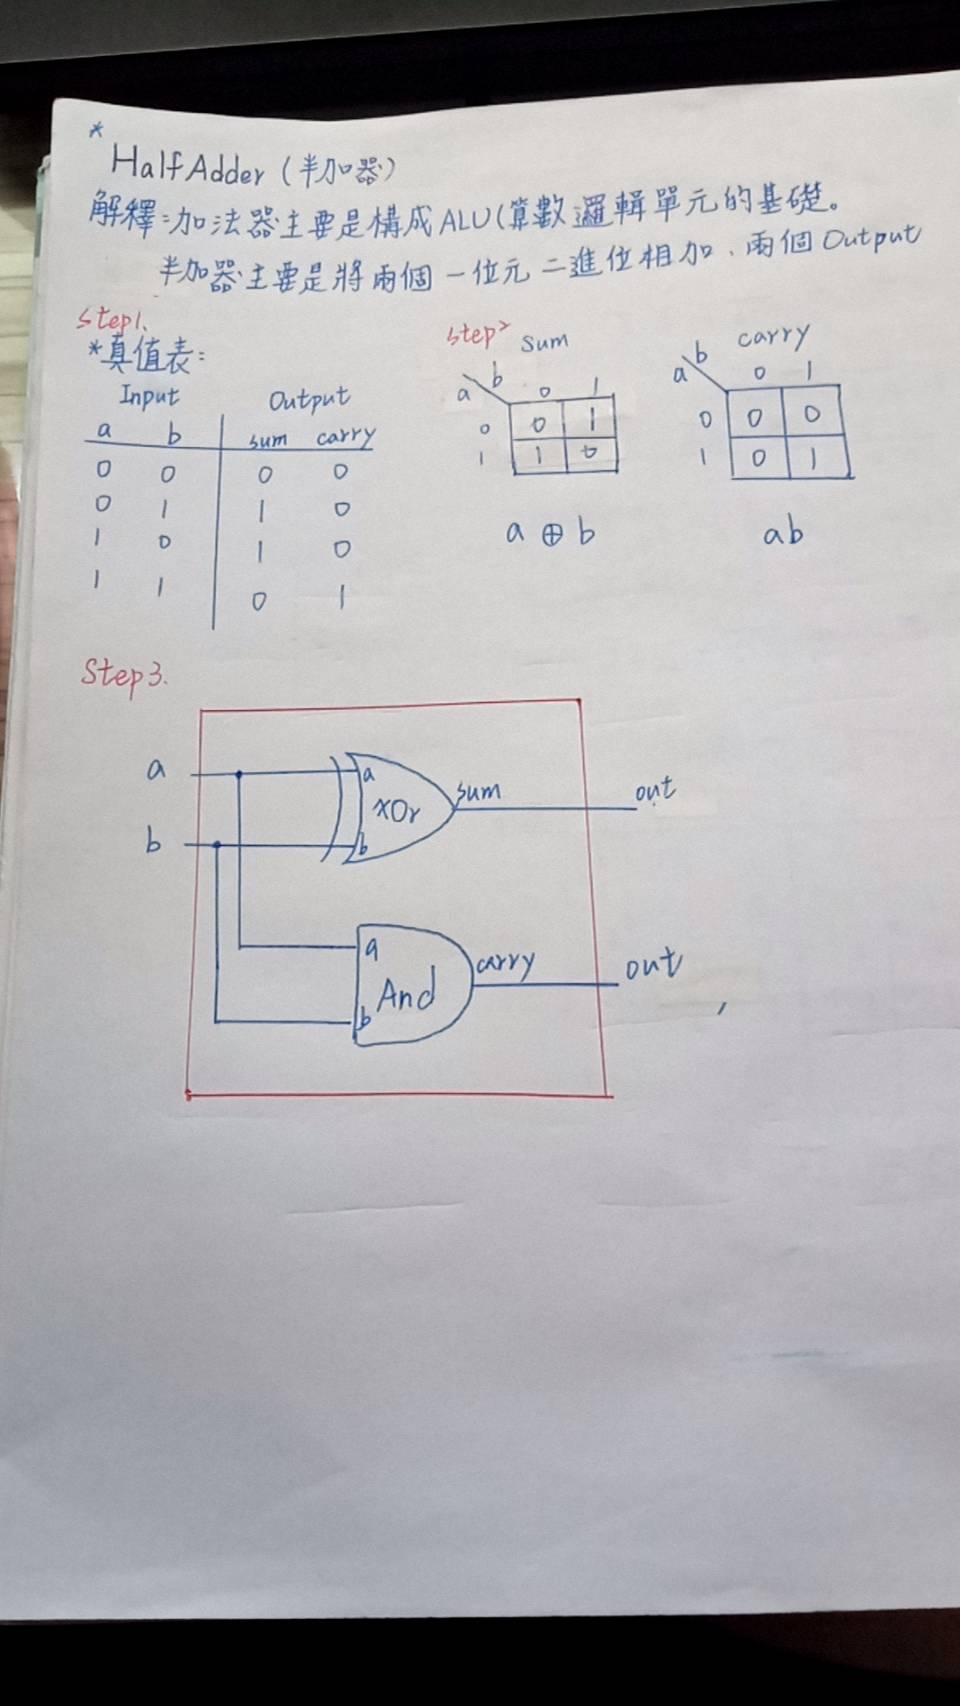 *
Half Adder (半加器)
解釋:加法器主要是構成ALU(算數邏輯單元的基礎。
半加器主要是將兩個一位元二進位相加、兩個Output
Step1.
*真值表:
Input Output
a b sum carry
0 0 0 0
0 1 1 0
1 0 1 0
1 1 0 1
Step2
sum
b
a 0 1
0 0 1
1 1 0
a ⊕ b
carry
b
a 0 1
0 0 0
1 0 1
ab
Step3.
a a sum out
xOr
b b
a carry out
And
b